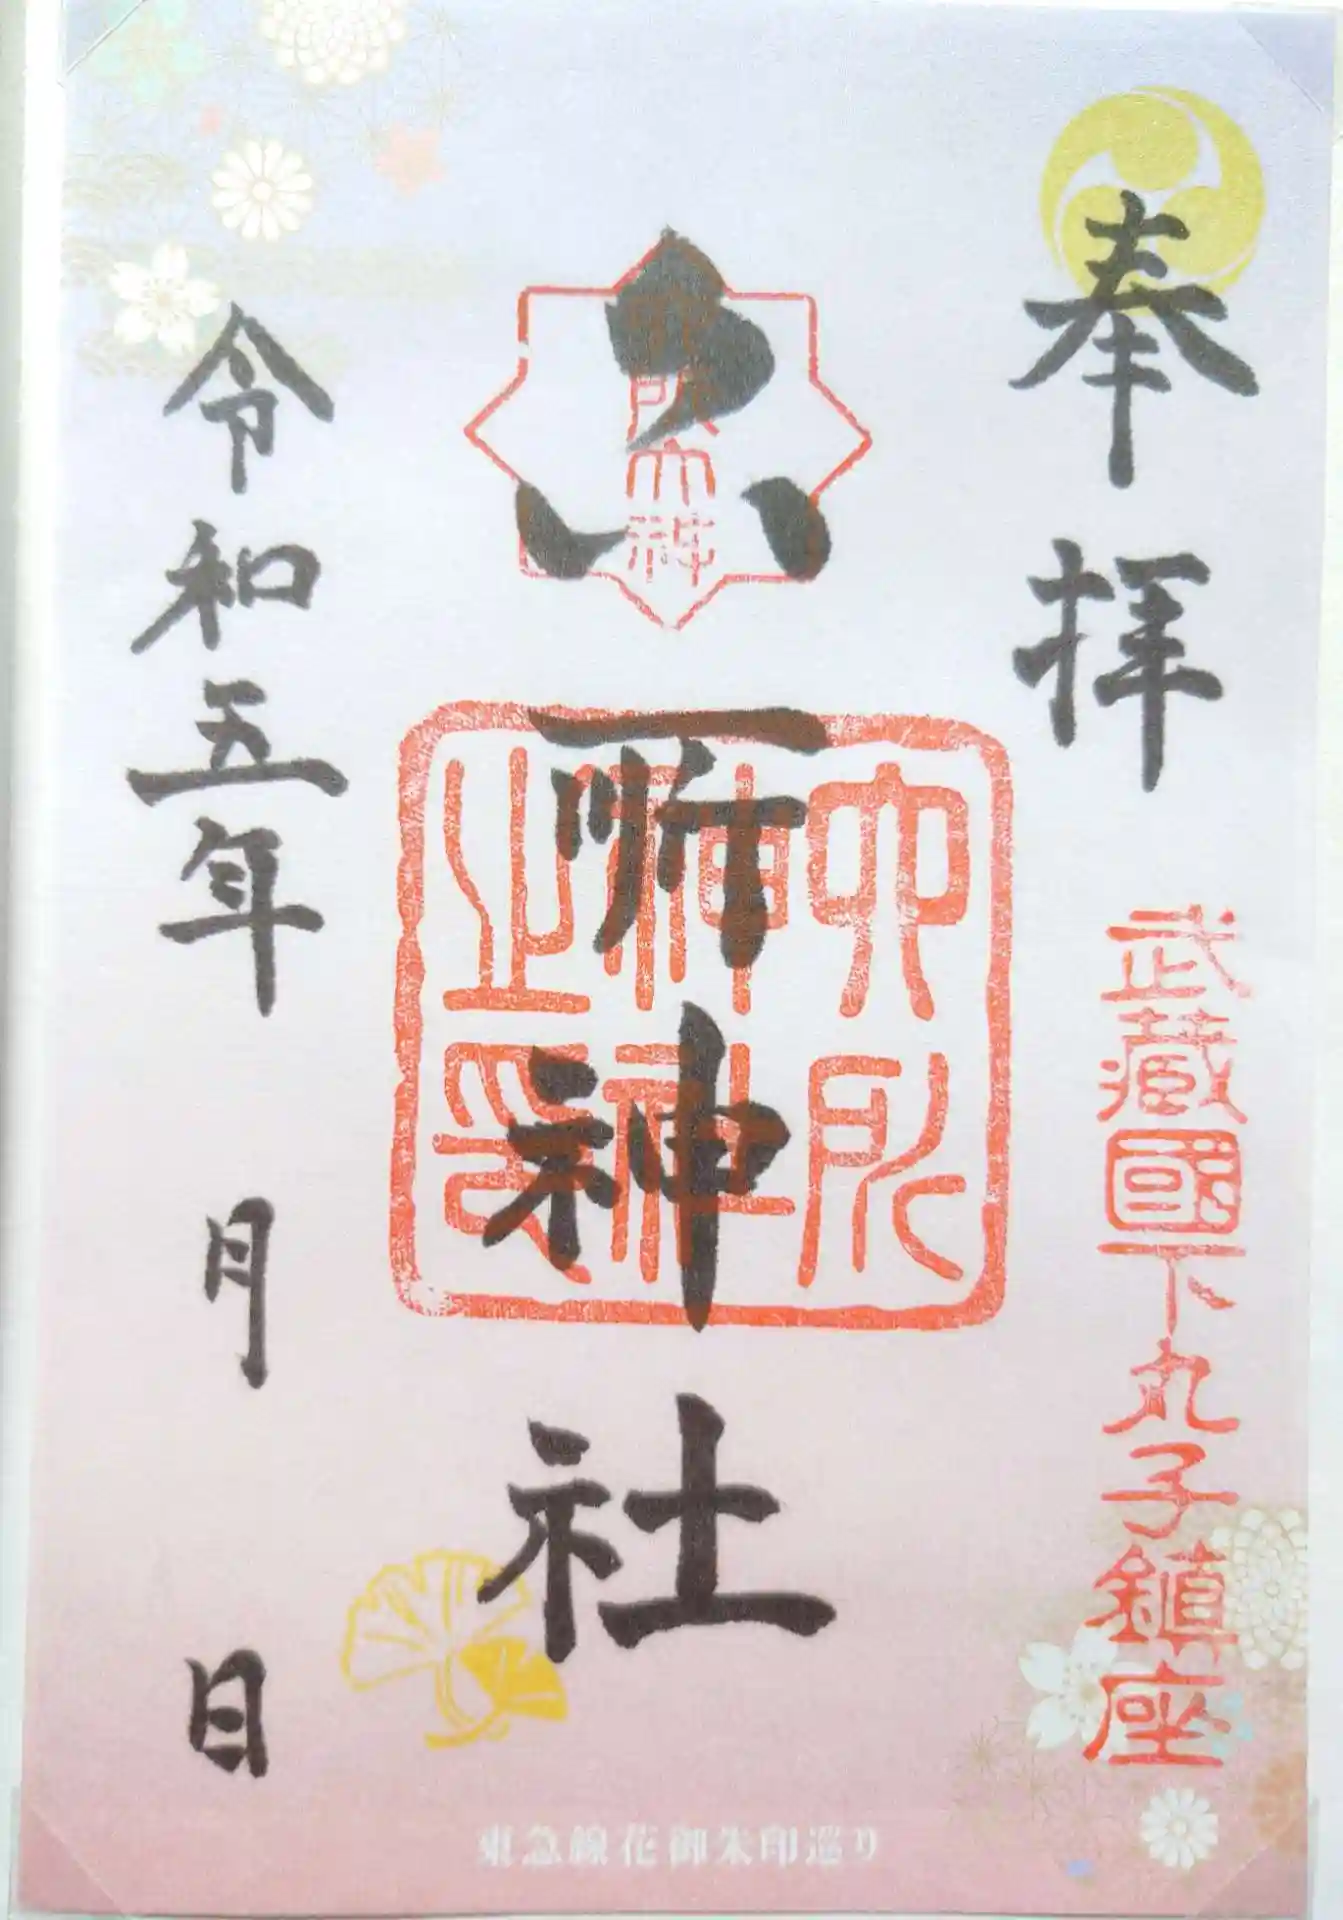 奉拝
武蔵國下丸子鎮座
六所神社
六所神社之印
令和五年 月 日
東急線花御朱印巡り